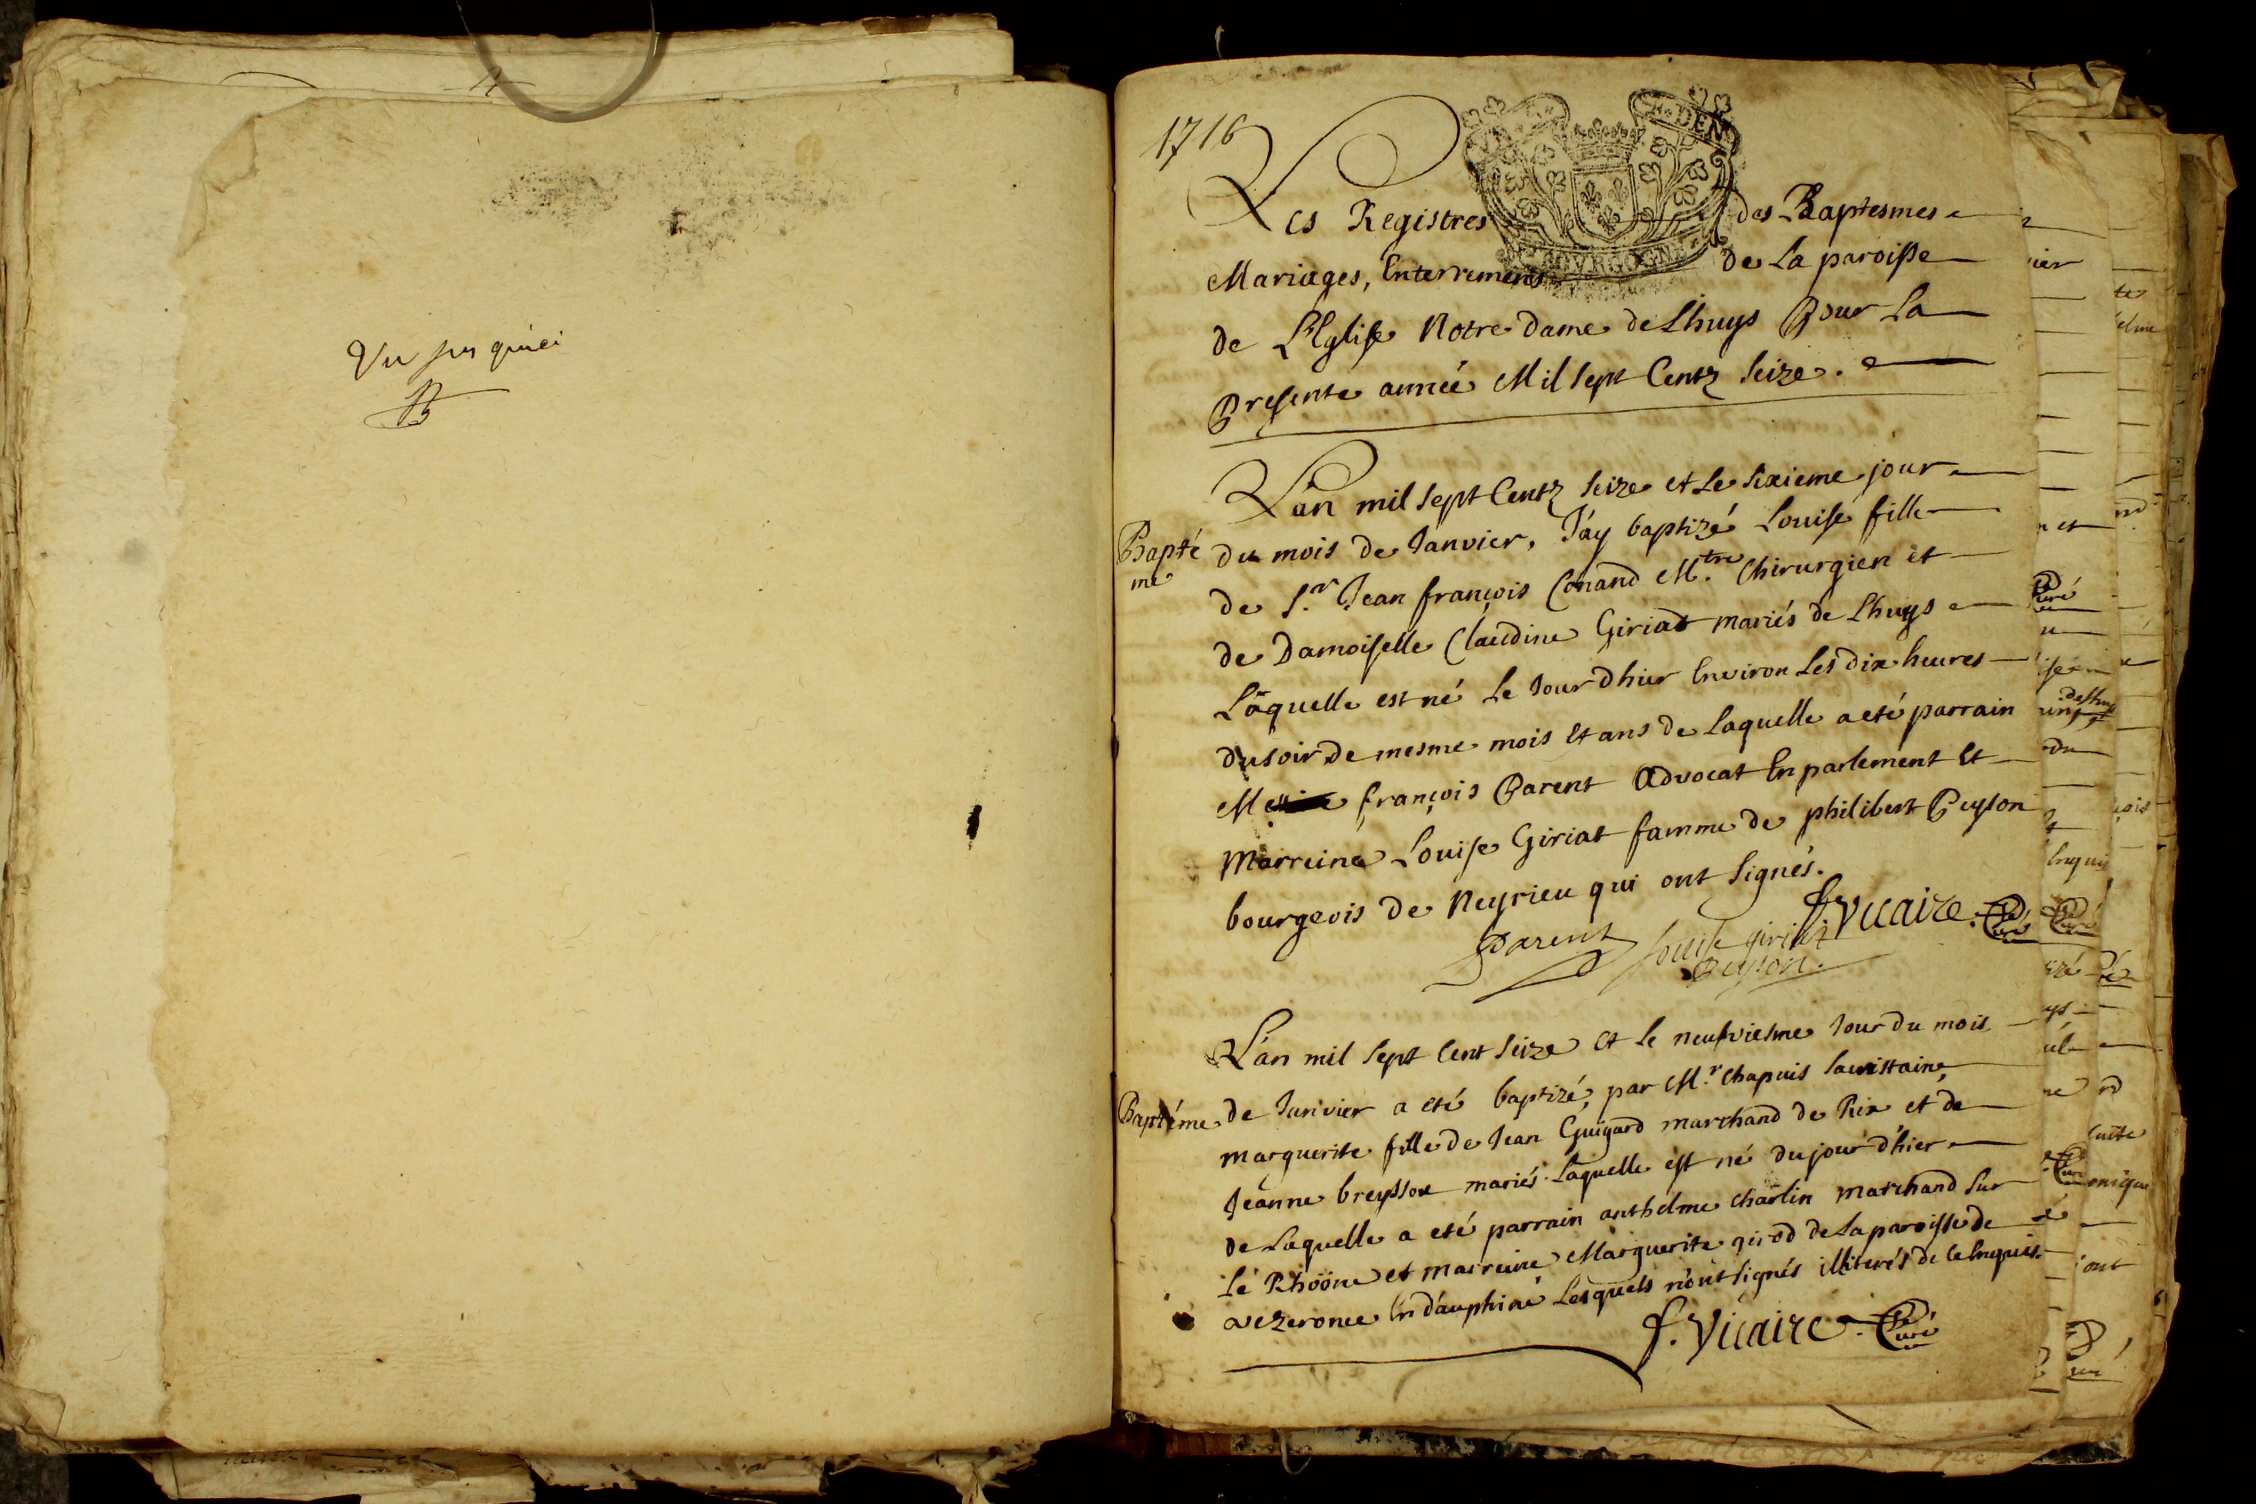 Vu jusqu'ici
1716
DEN
BOVRGOGNE
Les Registres des Baptesmes
Mariages, Enterrements de La paroisse
de L'Eglise Notre dame de Lhuys Pour La
Presente année Mil sept Centz seize.
L'an mil sept Centz seize et Le sixieme jour
Bapté
me
du mois de Janvier, J'ay baptizé Louise fille
de S.r Jean françois Conand M.tre Chirurgien et
de Damoiselle Claudine Giriat mariés de Lhuys
Laquelle est né Le Jour Dhier Environ Les dix heures
du soir De mesme mois Et ans de Laquelle a eté parrain
françois Parent Advocat En parlement Et
Marreine Louise Giriat famme de philibert Peyson
bourgeois de Neyrieu qui ont signés.
Parent Louise giriat f. Vicaire. Curé
Peyson.
L'an mil sept Cent seize et le neufviesme Jour du mois
Baptéme
de Janvier a eté baptizé, par M.r Chapuis sacristain,
marguerite fille de Jean Guigard marchand de Rix et de
Jeanne breysson mariés Laquelle est né du jour d'hier
de Laquelle a eté parrain anthelme Charlin marchand sur
Lé Rhöóne et marreine Marguerite girod de La paroisse de
Vezeronce En dauphiné Lesquels n'ont signés illiterés de ce Enquis.
f. Vicaire. Curé